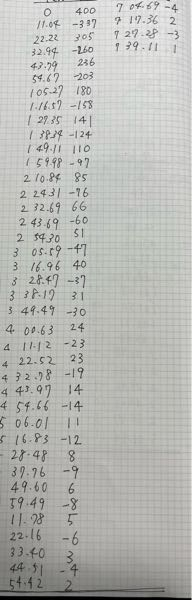 0 400
11.04 -337
22.22 305
32.94 -260
43.79 236
54.67 -203
1 05.27 180
1.16.57 -158
1 27.35 141
1 38.34 -124
1 49.11 110
1 59.98 -97
2 10.84 85
2 24.31 -76
2 32.69 66
2 43.69 -60
2 54.30 51
3 05.59 -47
3 16.96 40
3 28.47 -37
3 38.17 31
3 49.49 -30
4 00.63 24
4 11.12 -23
4 22.52 23
4 32.78 -19
4 43.97 14
4 54.66 -14
5 06.01 11
5 16.83 -12
28.48 8
37.76 -9
49.60 6
59.49 -8
11.78 5
22.16 -6
33.40 3
44.51 -4
54.42 2
7 04.69 -4
7 17.36 2
7 27.28 -3
7 39.11 1